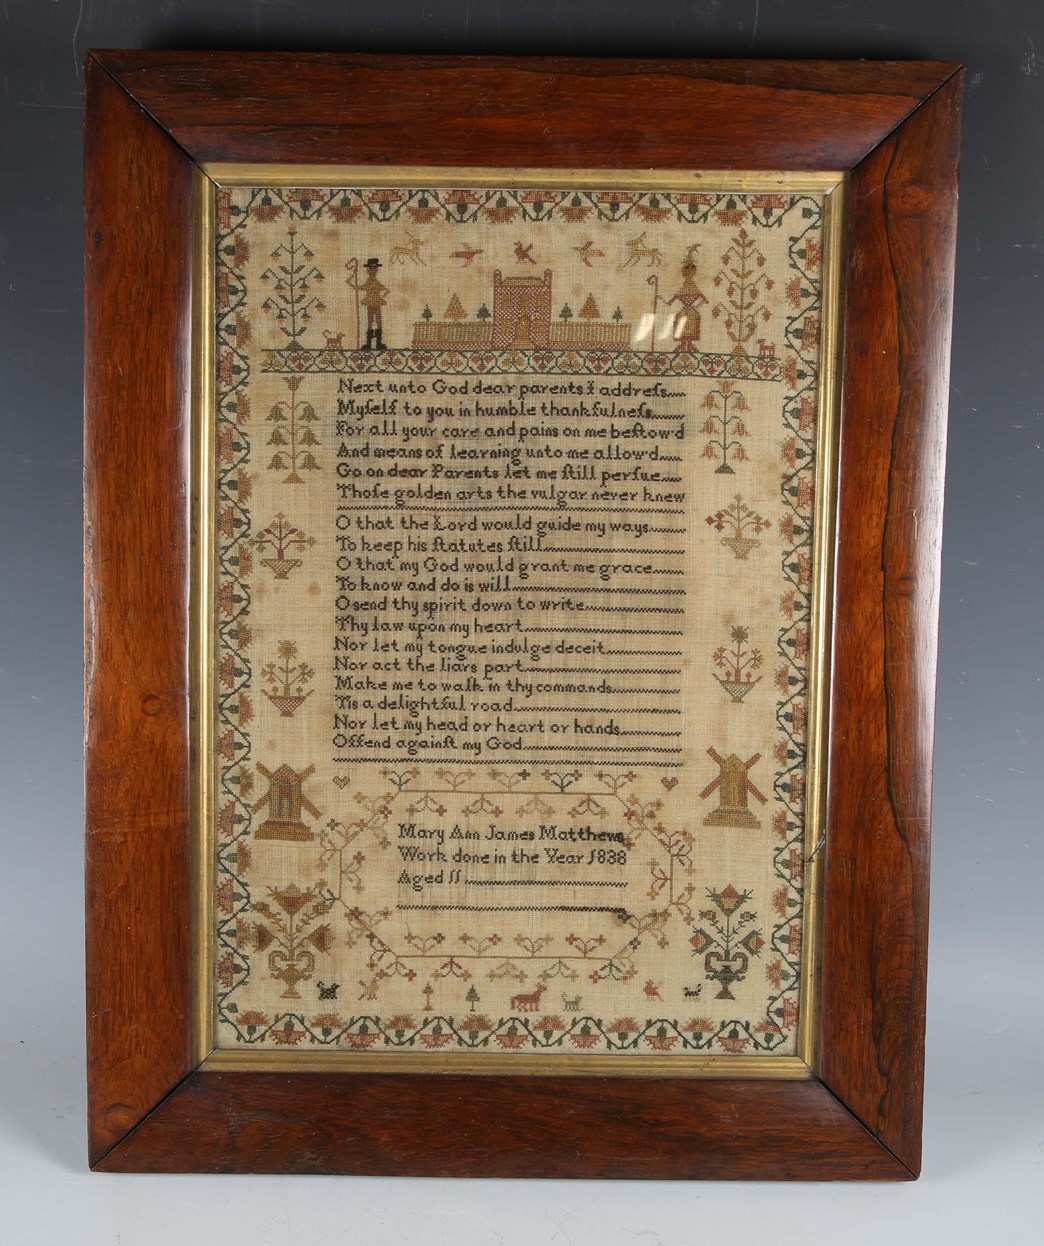 Next unto God dear parents I addreſs
Myſelf to you in humble thankfulneſs
For all your care and pains on me beſtow'd
And means of learning unto me allow'd
Go on dear Parents let me ſtill perſue
Thoſe golden arts the vulgar never knew
O that the Lord would guide my ways
To keep his ſtatutes ſtill
O that my God would grant me grace
To know and do is will
O send thy spirit down to write
Thy law upon my heart
Nor let my tongue indulge deceit
Nor act the liars part
Make me to walk in thy commands
Tis a delightful road
Nor let my head or heart or hands
Offend againſt my God
Mary Ann James Matthews
Work done in the Year 1838
Aged 11